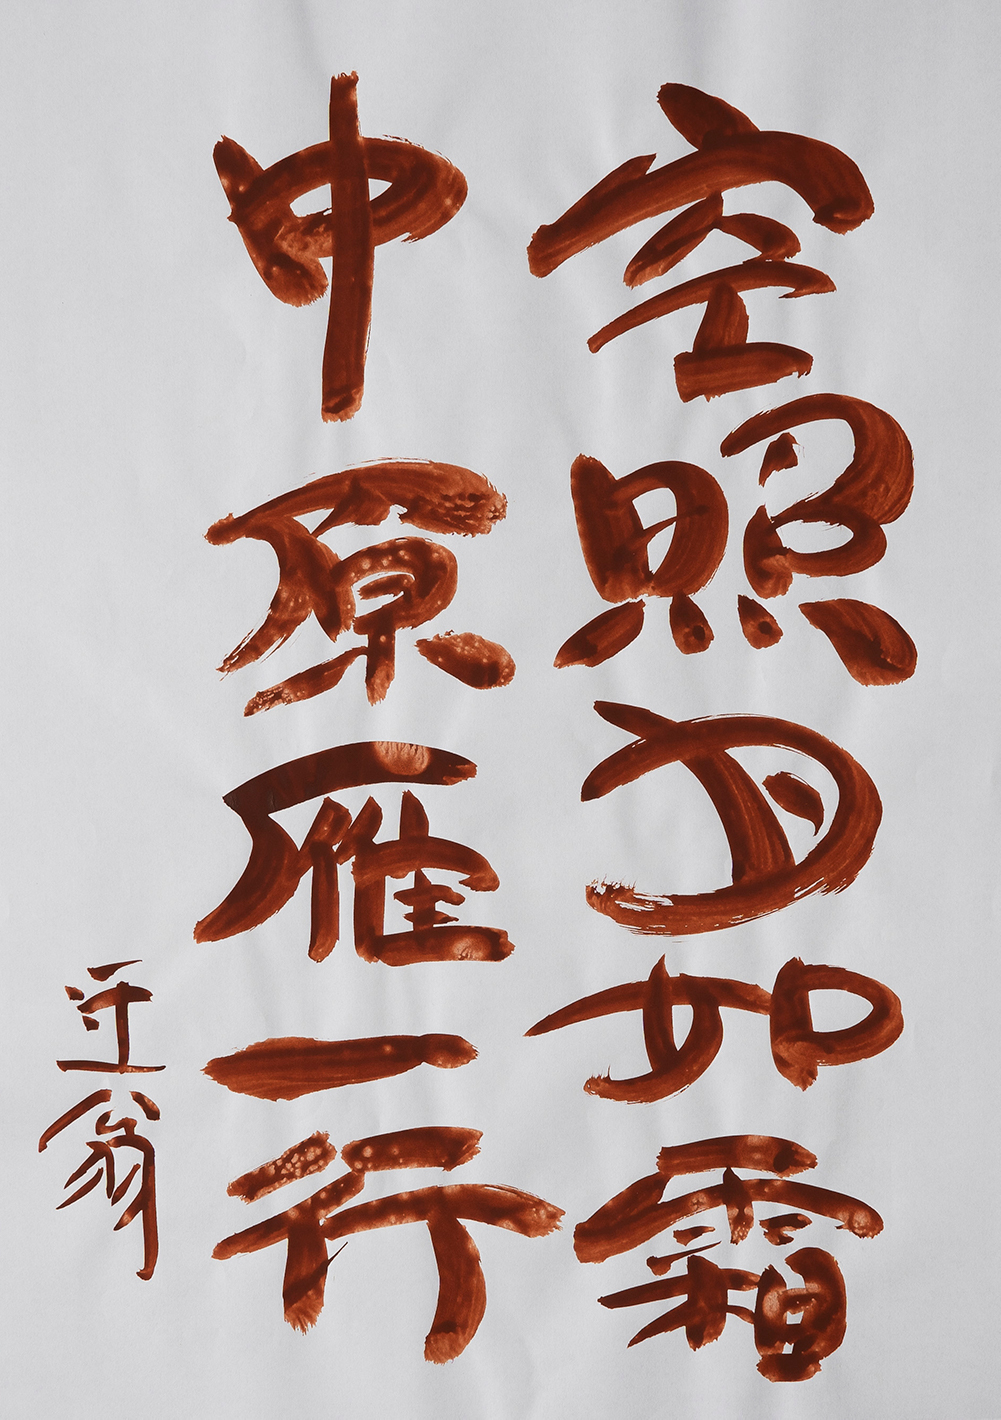 空照月如霜
中原雁一行
迂翁